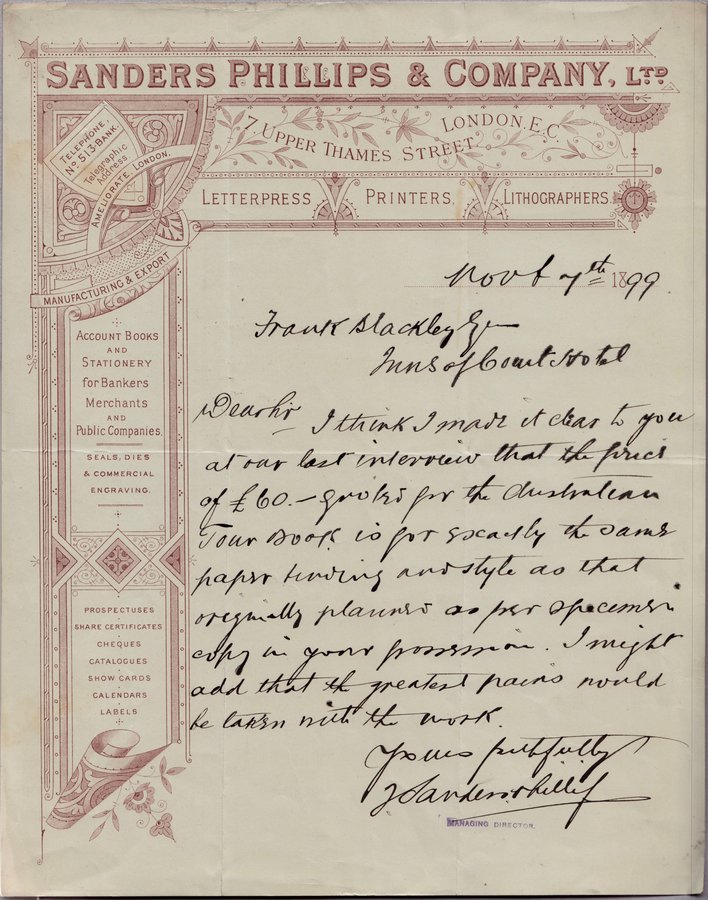 SANDERS PHILLIPS & COMPANY, LTD
7, UPPER THAMES STREET
LONDON. E.C.
TELEPHONE,
No. 513-BANK.
Telegraphic
Address
AMELIORATE LONDON.
LETTERPRESS PRINTERS, LITHOGRAPHERS.
MANUFACTURING & EXPORT
ACCOUNT BOOKS
AND
STATIONERY
for BANKERS
MERCHANTS
AND
PUBLIC COMPANIES.
SEALS, DIES
& COMMERCIAL
ENGRAVING.
PROSPECTUSES
SHARE CERTIFICATES
CHEQUES
CATALOGUES
SHOW CARDS
CALENDARS
LABELS
7th 1899
Frank Blackley Esq
Inns of Court Hotel
Dear Sir
I think I made it clear to you
at our last interview that the price
of £60.— quoted for the Australian
Tour Book is for exactly the same
paper binding and style as that
originally planned as per specimen
copy in your possession. I might
add that the greatest pains would
be taken with the work.
Yours faithfully
J Sanders Phillips
MANAGING DIRECTOR.